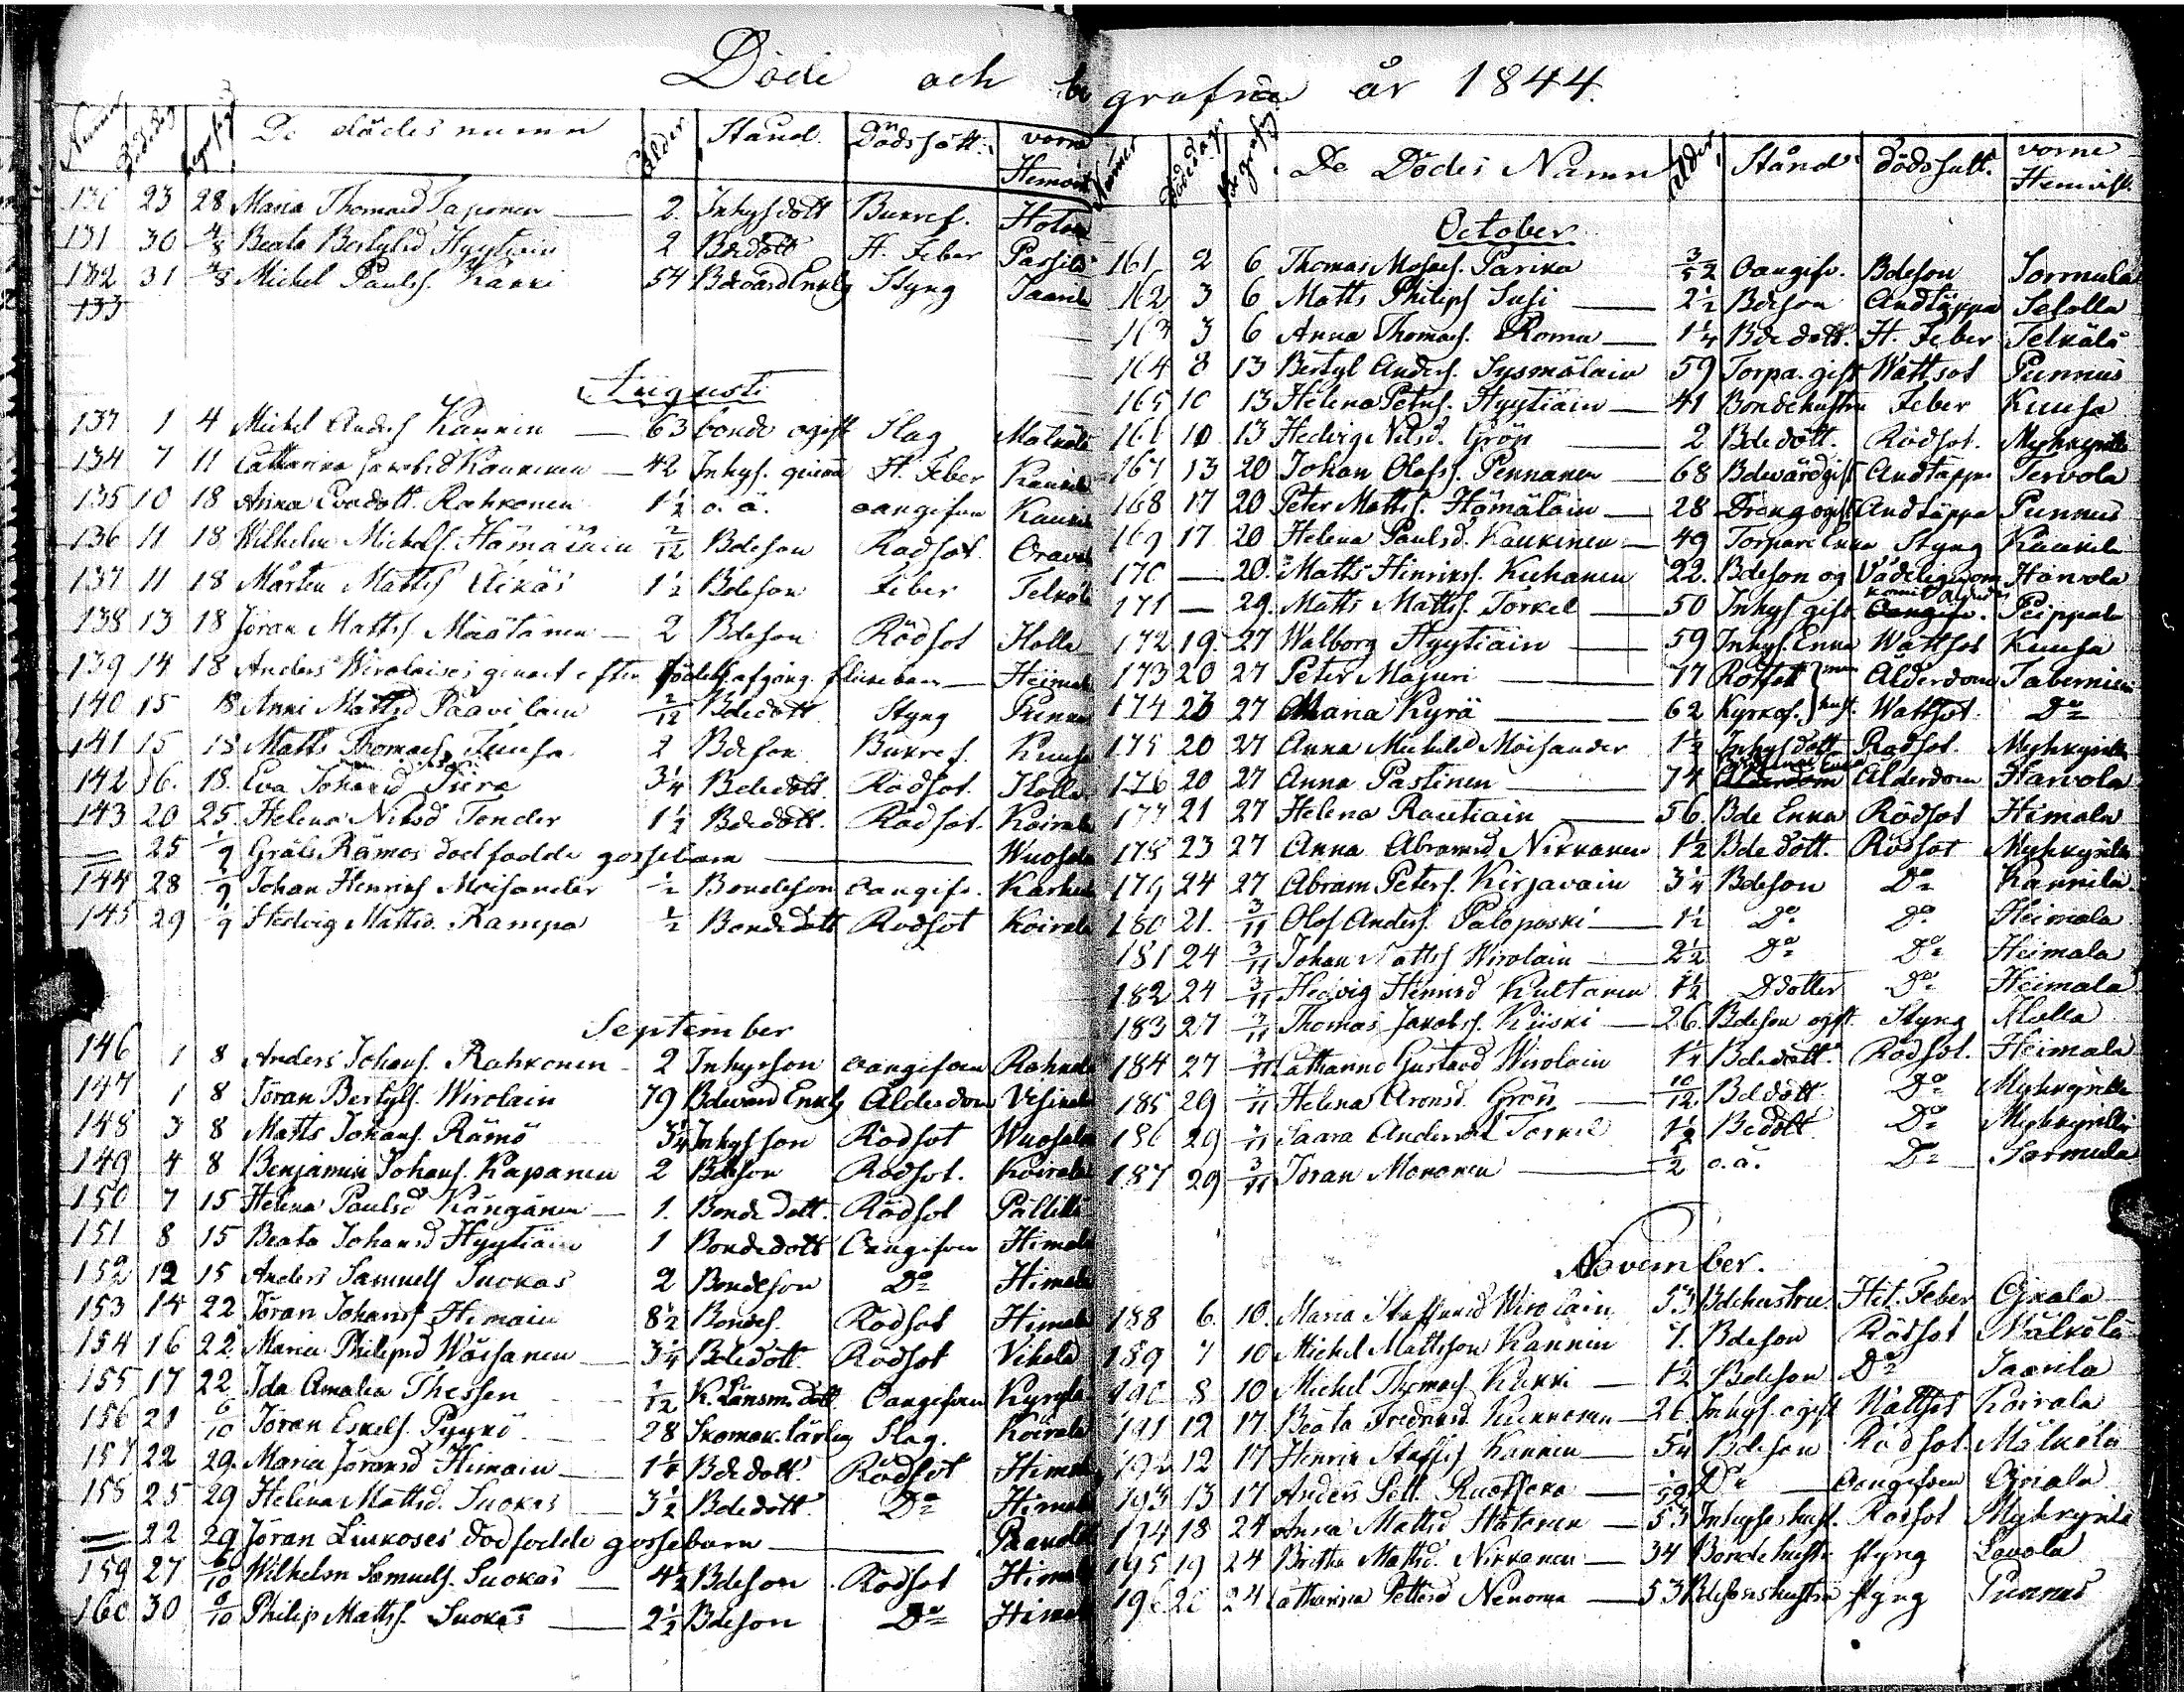 Döde och be
Nummer Dödedag begrafng De dödes namn Ålder Stånd. Dödssätt. vorne Hemvist
130 23 28 Maria Thomasd Taponen — 2. Inhysdott Bukref.
131 30 4/8 Beata Bertylsd Hyytiäin 2 Bdedott H. Feber
132 31 4/8 Michel Paulss. Kaxri 54 Bdevärd Enkg Styng
133
Augusti
137 1 4 Michel Anders Kannin — 63 bonde ogift Slag Mälkölä
134 7 11 Catharina Jacobsd Kaukinen — 42 Inhys. quinna H. Feber
135 10 18 Anna Evadott. Rahkonen 1½ o.ä. oangifven
136 11 18 Wilhelm Michelss. Hämäläin 2/12 Bdeson Rödsot.
137 11 18 Mårten Mattss Äikäs 1½ Bdeson Feber
138 13 18 Jöran Mattss. Määtänen — 2 Bdeson Rödsot Holla
139 14 18 Anders Wirolaises genast efter födels. afgång. flickebarn —
140 15 18 Anni Mattsd Paavilain 2/12 Bdedott Styng
141 15 18 Matts Thomass. Kuusa 2 Bdeson Bukref. Kuusa
142 16. 18. Eva Johansd Piira 3¼ Bdedott. Rödsot. Holla
143 20 25. Helena Nilsd Tonder 1½ Bdedott. Rödsot. Koirala
— 25 1/9 Rämös dödfödde gossebarn —
144 28 1/9 Johan Henriks Moisander ½ Bondeson oangifv.
145 29 1/9 Hedvig Mattsd. Rampa ½ Bondedott Rödsot Koirala
September
146 1 8 Anders Johans. Rahkonen - 2 Inhysson oangifven
147 1 8 Jöran Bertylss. Wirolain 79 Bdevärd Enklg Ålderdom
148 3 8 Matts Johans. Rämö 3¼ Inhysson Rödsot
149 4 8 Benjamin Johans. Kapanen 2 Bdeson Rödsot. Koirala
150 7 15 Helena Paulsd Kängänen — 1. Bondedott. Rödsot Pällilä
151 8 15 Beata Johansd Hyytiäin 1 Bondedott Oangifven Himala
152 12 15 Anders Samuelss Suokas 2 Bondeson Do Himala
153 14 22 Jöran Johanss Himain 8½ Bondes. Rödsot Himala
154 16 22 Maria Philipsd Wäisänen 3¼ Bdedott. Rödsot
155 17 22 Ida Amalia Thessen 1/12 K. Länsm. dott Oangifven
156 21 6/10 Jöran Eskelss. Pyykö 28 Skomak. lärling Slag. Koirala
157 22 29. Maria Joransd Himain — 1¼ Bdedott. Rödsot Himala
158 25 29 Helena Mattsd. Suokas 3½ Bdedott Do Himala
— 22 29 Jöran Liukoses dödfödde gossebarn —
159 27 6/10 Wilhelm Samuelss. Suokas — 4½ Bdeson Rödsot Himala
160 30 6/10 Philip Mattss. Suokas — 2½ Bdeson Do Himala
grafne år 1844.
Nummer Dödedagr Begrafng De Dödes Namn Ålder Stånd Dödssätt. vorne Hemvist
October
161 2 6 Thomas Mosess. Parika 3/52 Oangifv. Bdeson Sormula
162 3 6 Matts Philips Susi — 2½ Bdeson Andtäppa
163 3 6 Anna Thomass. Roma — 1¼ Bdedott. H. Feber Telkälä
164 8 13 Bertyl Anderss. Sysmäläin 59 Torpa. gift Wattsot Punnus
165 10 13 Helena Petrss. Hyytiäin — 41 Bondehustru Feber Kuusa
166 10 13 Hedvig Nilsd. Grön 2 Bdedott. Rödsot.
167 13 20 Johan Olofss. Pennanen — 68 Bdevärdgift Andtäppa Tervola
168 17 20 Peter Mattss. Hämäläin — 28 Dräng ogift Andtäppa Punnus
169 17 20 Helena Paulsd. Kaukinen — 49 Torpare Enka Styng Kaukila
170 — 20. Matts Hinrikss. Kuhanen 22. Bdeson og Vådeligen om kommit Harvola
171 — 29. Matts Mattss. Torkel — 50 Inhys gift Ålderdom Peippola
172 19. 27 Walborg Hyytiäin — 59 Inhys. Enka Wattsot Kuusa
173 20 27 Peter Majuri — 77 man Ålderdom
174 26 27 Maria Kyrä — 62 hust. Wattsot. Do
175 20 27 Anna Michelsd Moisander 1½ Inhysdott Rödsot.
176 20 27 Anna Pastinen — 74 Ålderdom Harvola
177 21 27 Helena Rautiain — 56. Bde Enka Rödsot Himala
178 23 27 Anna Abramsd Nikkanen 1½ Bdedott. Rödsot
179 24 27 Abram Peterss. Kirjavain 3¼ Bdeson Do Kannila
180 21. 3/11 Olof Anderss. Paloposki — 1½ Do Do Heimala
181 24 3/11 Johan Mattss Wirolain — 2½ Do Do Heimala
182 24 3/11 Hedvig Henrisd Kultanen 1½ Ddotter Do Heimala
183 27 3/11 Thomas Jakobss. Kiiski — 26. Bdeson ogft. Styng Holla
184 27 3/11 Catharina Gustavd Wirolain 1¼ Bdedott. Rödsot. Heimala
185 29 3/11 Helena Aronsd. Grön — 10/12 Bdedott. Do
186 29 3/11 Saara Andersd Torkel 1½ Bdedott Do
187 29 3/11 Jöran Mononen — ½ o.ä. Do Sormula
November.
188 6. 10. Maria Staffansd Wirolain 53 Bdehustru. Hit. Feber Ojrala
189 7 10 Michel Mattsson Kannin 7. Bdeson Rödsot Mälkölä
190 8 10 Michel Thomass. Kukki — 1½ Bdeson Do Jaarila
191 12 17 Beata Fredriksd. Kukkonen — 26. Inhys. ogift Wattsot Koirala
192 12 17 Henrik Staffss Kannin — 5¼ Bdeson Rödsot. Mälkölä
193 13 17 Anders Pett. — 1/52 Do — Oangifven
194 18 24 Anna Mattsd Hatonen — 53 Inhyses hust. Rödsot
195 19 24 Britha Mattsd. Nikkanen — 34 Bondehustr. styng Lavola
196 20 24 Catharina Pettersd Nenonen — 53 Bdesonshustru styng Punnus